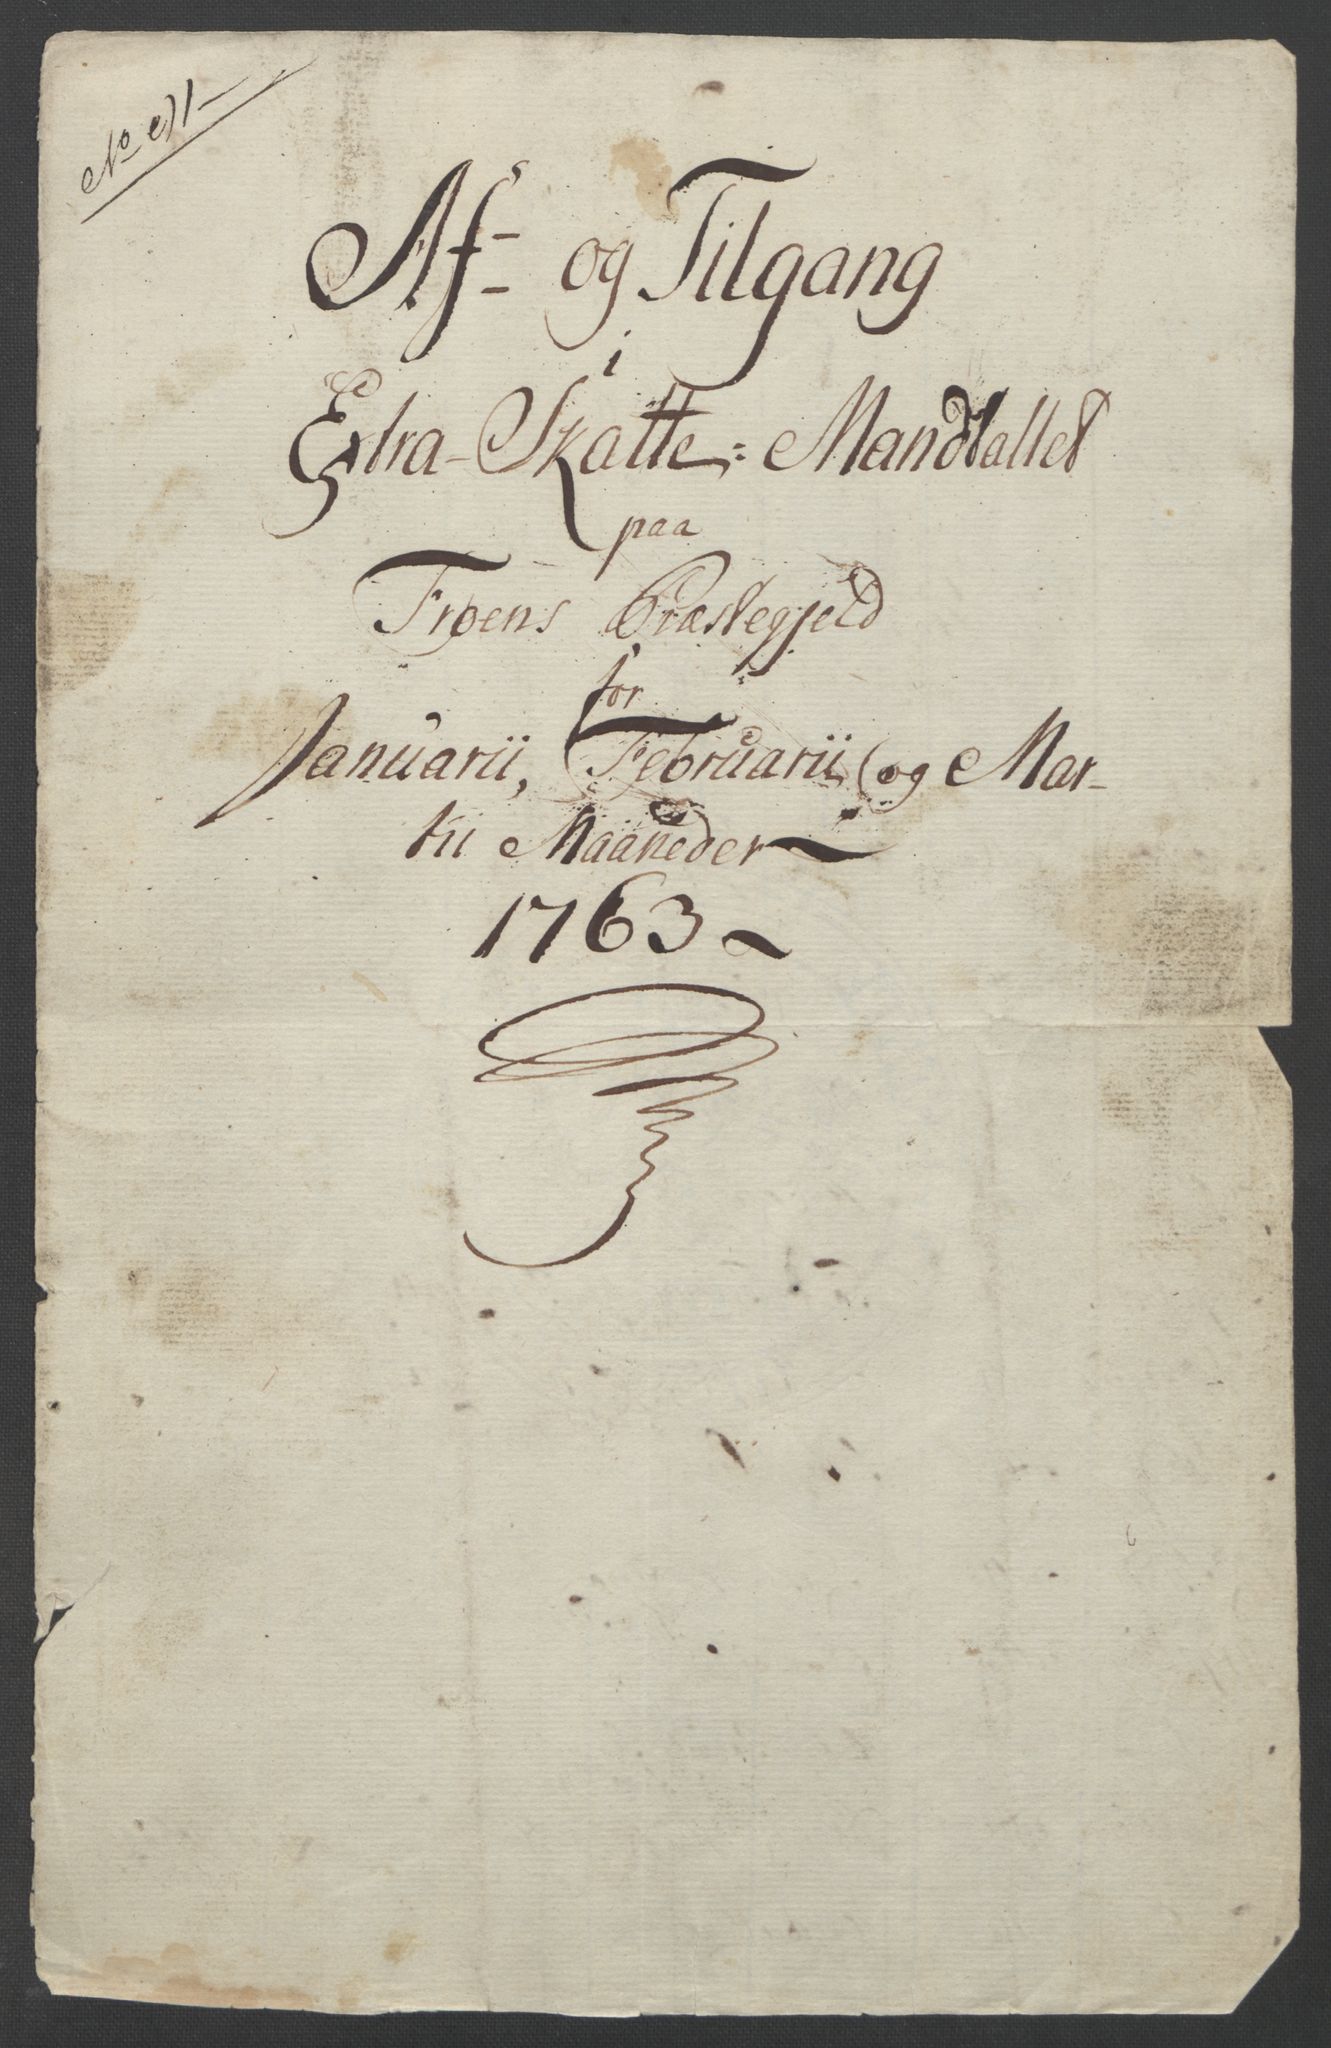 No
Af- og Tilgang
i
Extra-Skatte-Mandtallet
paa
Froens Præstegjeld
for
Januarii, Februarii og Mar-
tii Maaneder
1763